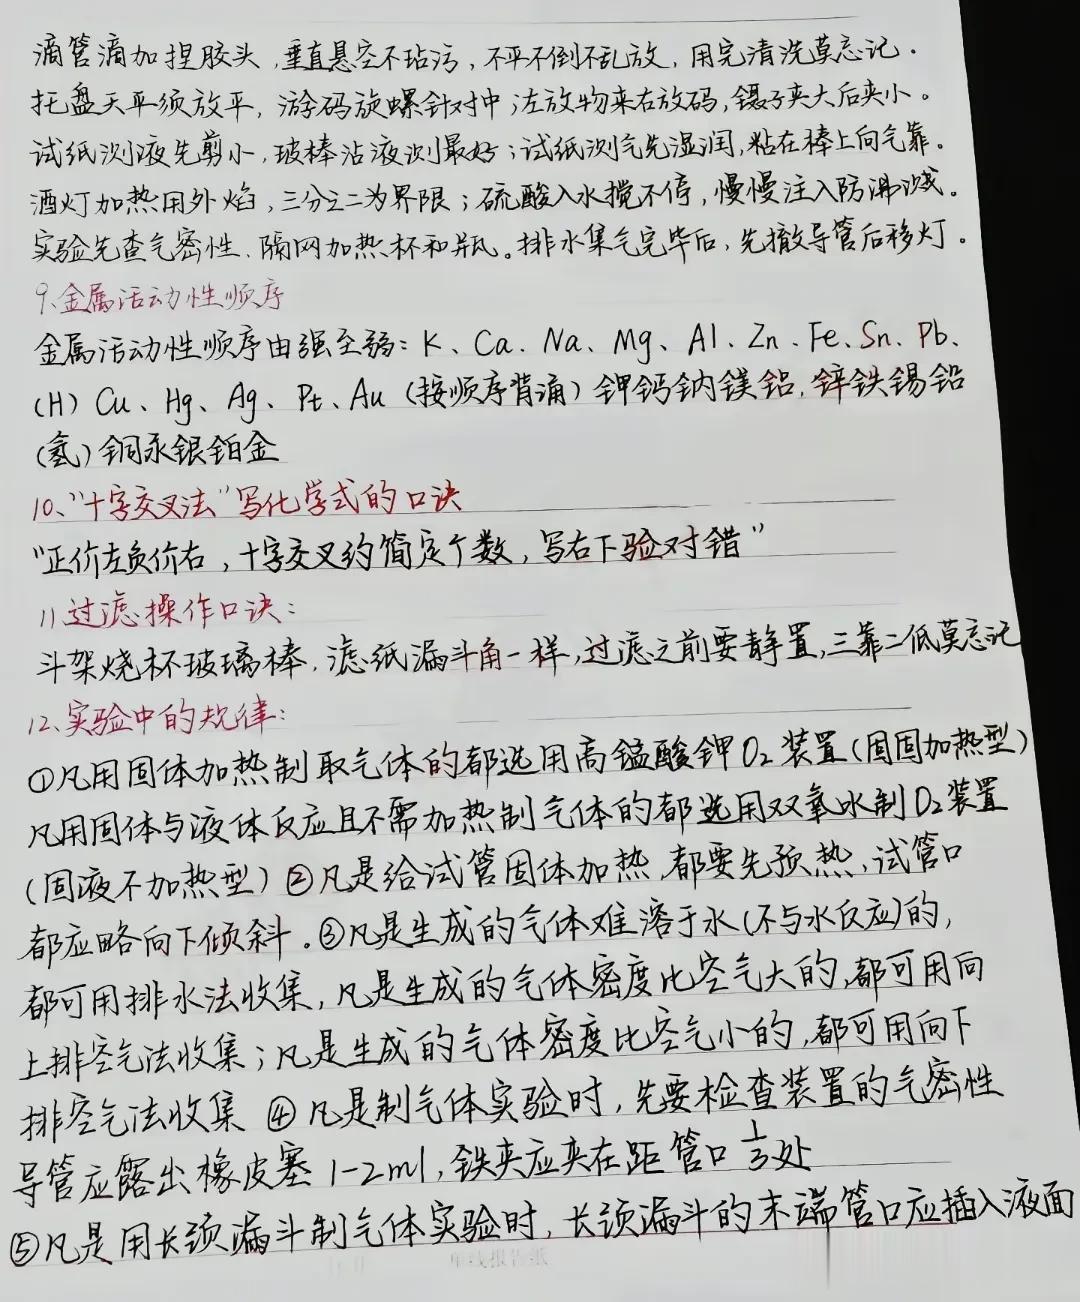 滴管滴加捏胶头,垂直悬空不玷污,不平不倒不乱放,用完清洗莫忘记.
托盘天平须放平,游码旋螺针对中;左放物来右放码,镊子夹大后夹小。
试纸测液先剪小,玻棒沾液测最好;试纸测气先湿润,粘在棒上向气靠。
酒灯加热用外焰,三分之二为界限;硫酸入水搅不停,慢慢注入防沸溅。
实验先查气密性、隔网加热杯和瓶。排水集气完毕后,先撤导管后移灯。
9、金属活动性顺序
金属活动性顺序由强至弱:K、Ca、Na、Mg、Al、Zn、Fe、Sn、Pb、
(H)Cu、Hg、Ag、Pt、Au(按顺序背诵)钾钙钠镁铝,锌铁锡铅
(氢)铜汞银铂金
10、"十字交叉法"写化学式的口诀
"正价左负价右,十字交叉约简定个数,写右下验对错"
11过滤操作口诀:
斗架烧杯玻璃棒,滤纸漏斗角一样,过滤之前要静置,三靠二低莫忘记
12、实验中的规律:
①凡用固体加热制取气体的都选用高锰酸钾O₂装置(固固加热型)
凡用固体与液体反应且不需加热制气体的都选用双氧水制O₂装置
(固液不加热型)②凡是给试管固体加热,都要先预热,试管口
都应略向下倾斜.③凡是生成的气体难溶于水(不与水反应)的,
都可用排水法收集,凡是生成的气体密度比空气大的,都可用向
上排空气法收集;凡是生成的气体密度比空气小的,都可用向下
排空气法收集 ④凡是制气体实验时,先要检查装置的气密性
导管应露出橡皮塞1-2ml,铁夹应夹在距管口1/3处
⑤凡是用长颈漏斗制气体实验时,长颈漏斗的末端管口应插入液面
单线报告纸